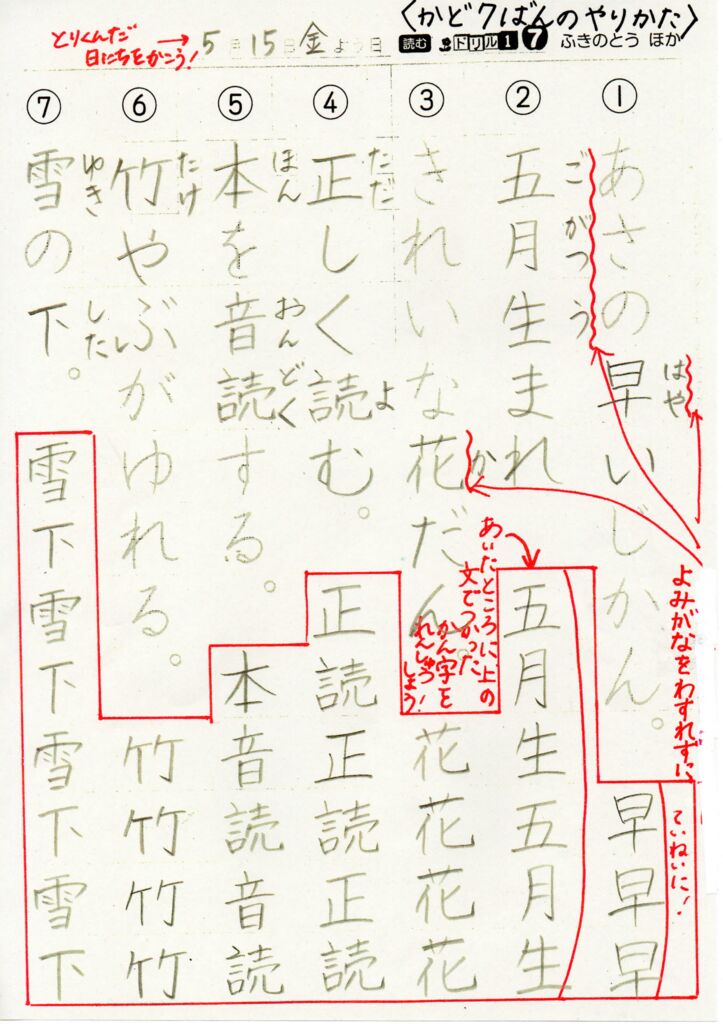 〈かど7ばんのやりかた〉
読む ドリル1 7 ふきのとう ほか
とりくんだ
日にちをかこう！
→ 5月15日金よう日
①
あさの早いじかん。
はや
早早早
②
五月生まれ
ごがつう
五月生五月生
③
きれいな花だん。
か
花花花花
④
正しく読む。
ただ
よ
正読正読正読
⑤
本を音読する。
ほん
おんどく
本音読音読
⑥
竹やぶがゆれる。
たけ
竹竹竹竹
⑦
雪の下。
ゆき
した
雪下雪下雪下雪下
よみがなをわすれずに
ていねいに！
あいたところに上の
文でつかった
かん字を
れんしゅう
しよう！